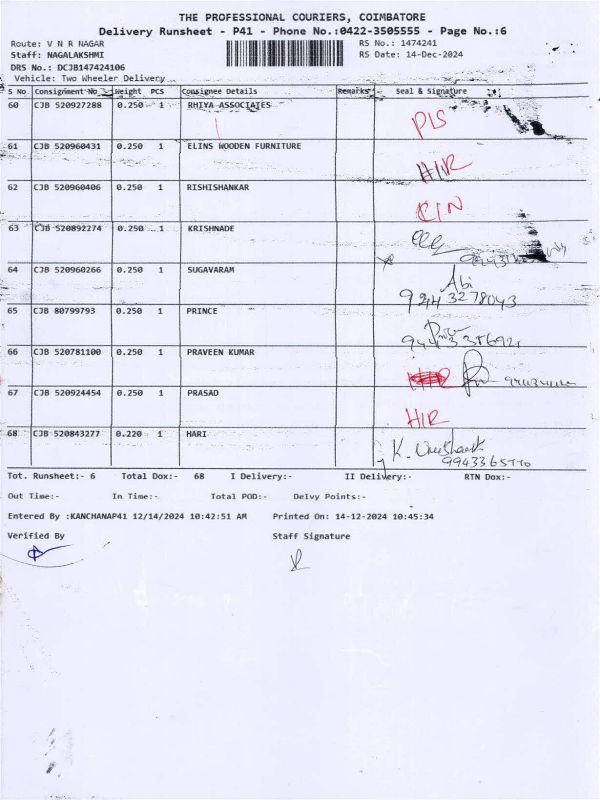 THE PROFESSIONAL COURIERS, COIMBATORE
Delivery Runsheet - P41 - Phone No.:0422-3505555 - Page No.:6
Route: V N R NAGAR RS No.: 1474241
Staff: NAGALAKSHMI RS Date: 14-Dec-2024
DRS No.: DCJB147424106
Vehicle: Two Wheeler Delivery
S No Consignment No Weight PCS Consignee Details Remarks Seal & Signature
60 CJB 520927288 0.250 1 RHIYA ASSOCIATES
61 CJB 520960431 0.250 1 ELINS WOODEN FURNITURE HIR
62 CJB 520960406 0.250 1 RISHISHANKAR
63 CJB 520892274 0.250 1 KRISHNADE
64 CJB 520960266 0.250 1 SUGAVARAM Abi
944 3278043
65 CJB 80799793 0.250 1 PRINCE
66 CJB 520781100 0.250 1 PRAVEEN KUMAR
67 CJB 520924454 0.250 1 PRASAD HIR
68 CJB 520843277 0.220 1 HARI
Tot. Runsheet:- 6 Total Dox:- 68 I Delivery:- II Delivery:- RTN Dox:-
Out Time:- In Time:- Total POD:- Delvy Points:-
Entered By :KANCHANAP41 12/14/2024 10:42:51 AM Printed On: 14-12-2024 10:45:34
Verified By Staff Signature